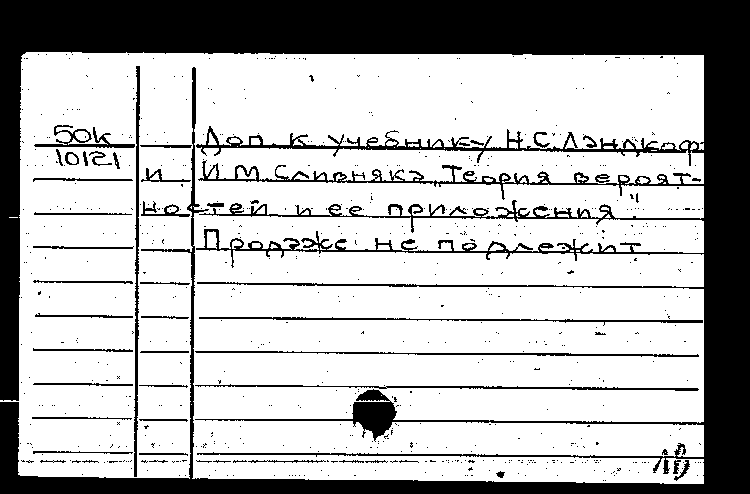 50к
10121
Доп. к учебнику Н.С. Лэндкоф
и И.М. Сливняка „Теория вероят-
ностей и ее приложения".
Продаже не подлежит